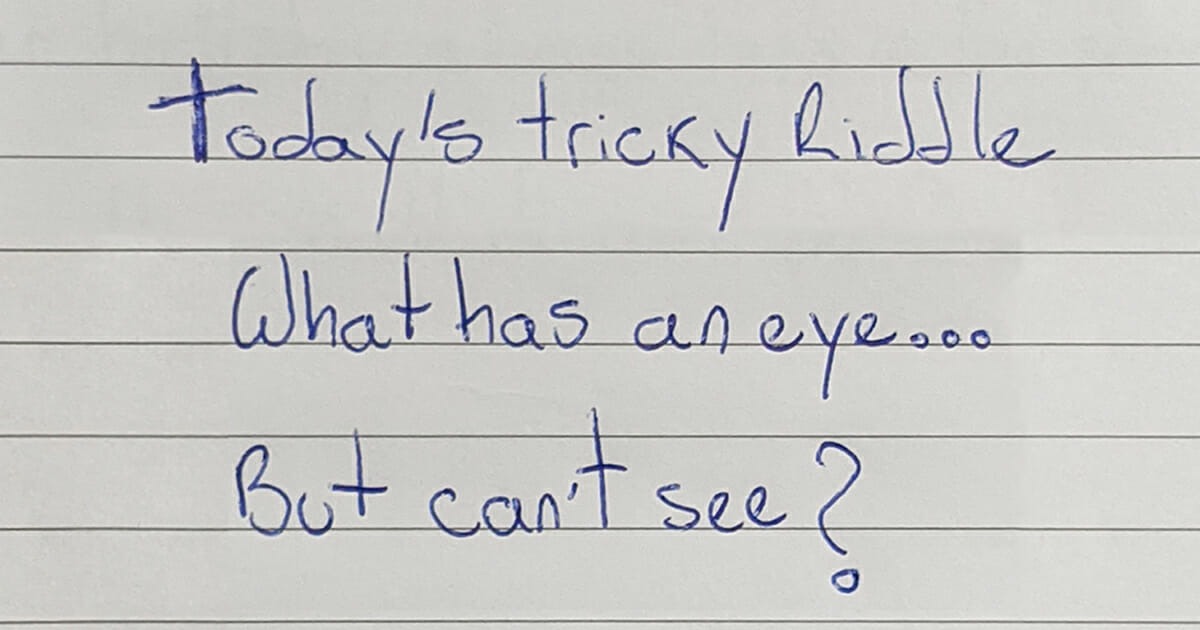 Today's tricky Riddle
What has an eye...
But can't see?